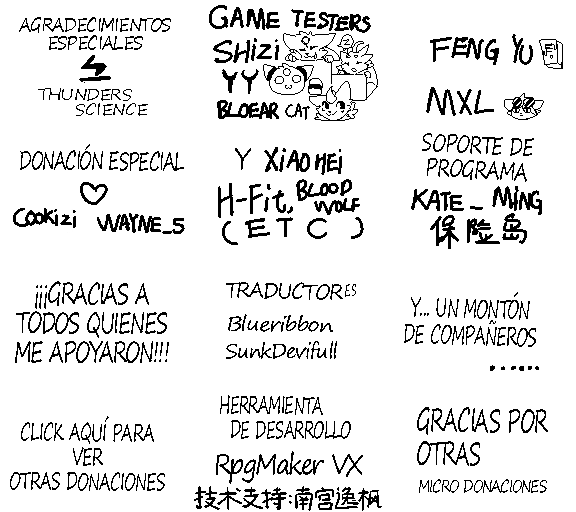 AGRADECIMIENTOS
ESPECIALES
THUNDERS
SCIENCE
GAME TESTERS
SHIZI
YY
BLOEAR CAT
FENG YU
MXL
DONACIÓN ESPECIAL
COOKIZI WAYNE_S
Y XIAO HEI
H-Fit, BLOOD
WOLF
( E T C )
SOPORTE DE
PROGRAMA
KATE_MING
保险岛
¡¡¡GRACIAS A
TODOS QUIENES
ME APOYARON!!!
TRADUCTORES
Blueribbon
SunkDevifull
Y... UN MONTÓN
DE COMPAÑEROS
......
CLICK AQUÍ PARA
VER
OTRAS DONACIONES
HERRAMIENTA
DE DESARROLLO
RpgMaker VX
技术支持:南宫逸枫
GRACIAS POR
OTRAS
MICRO DONACIONES